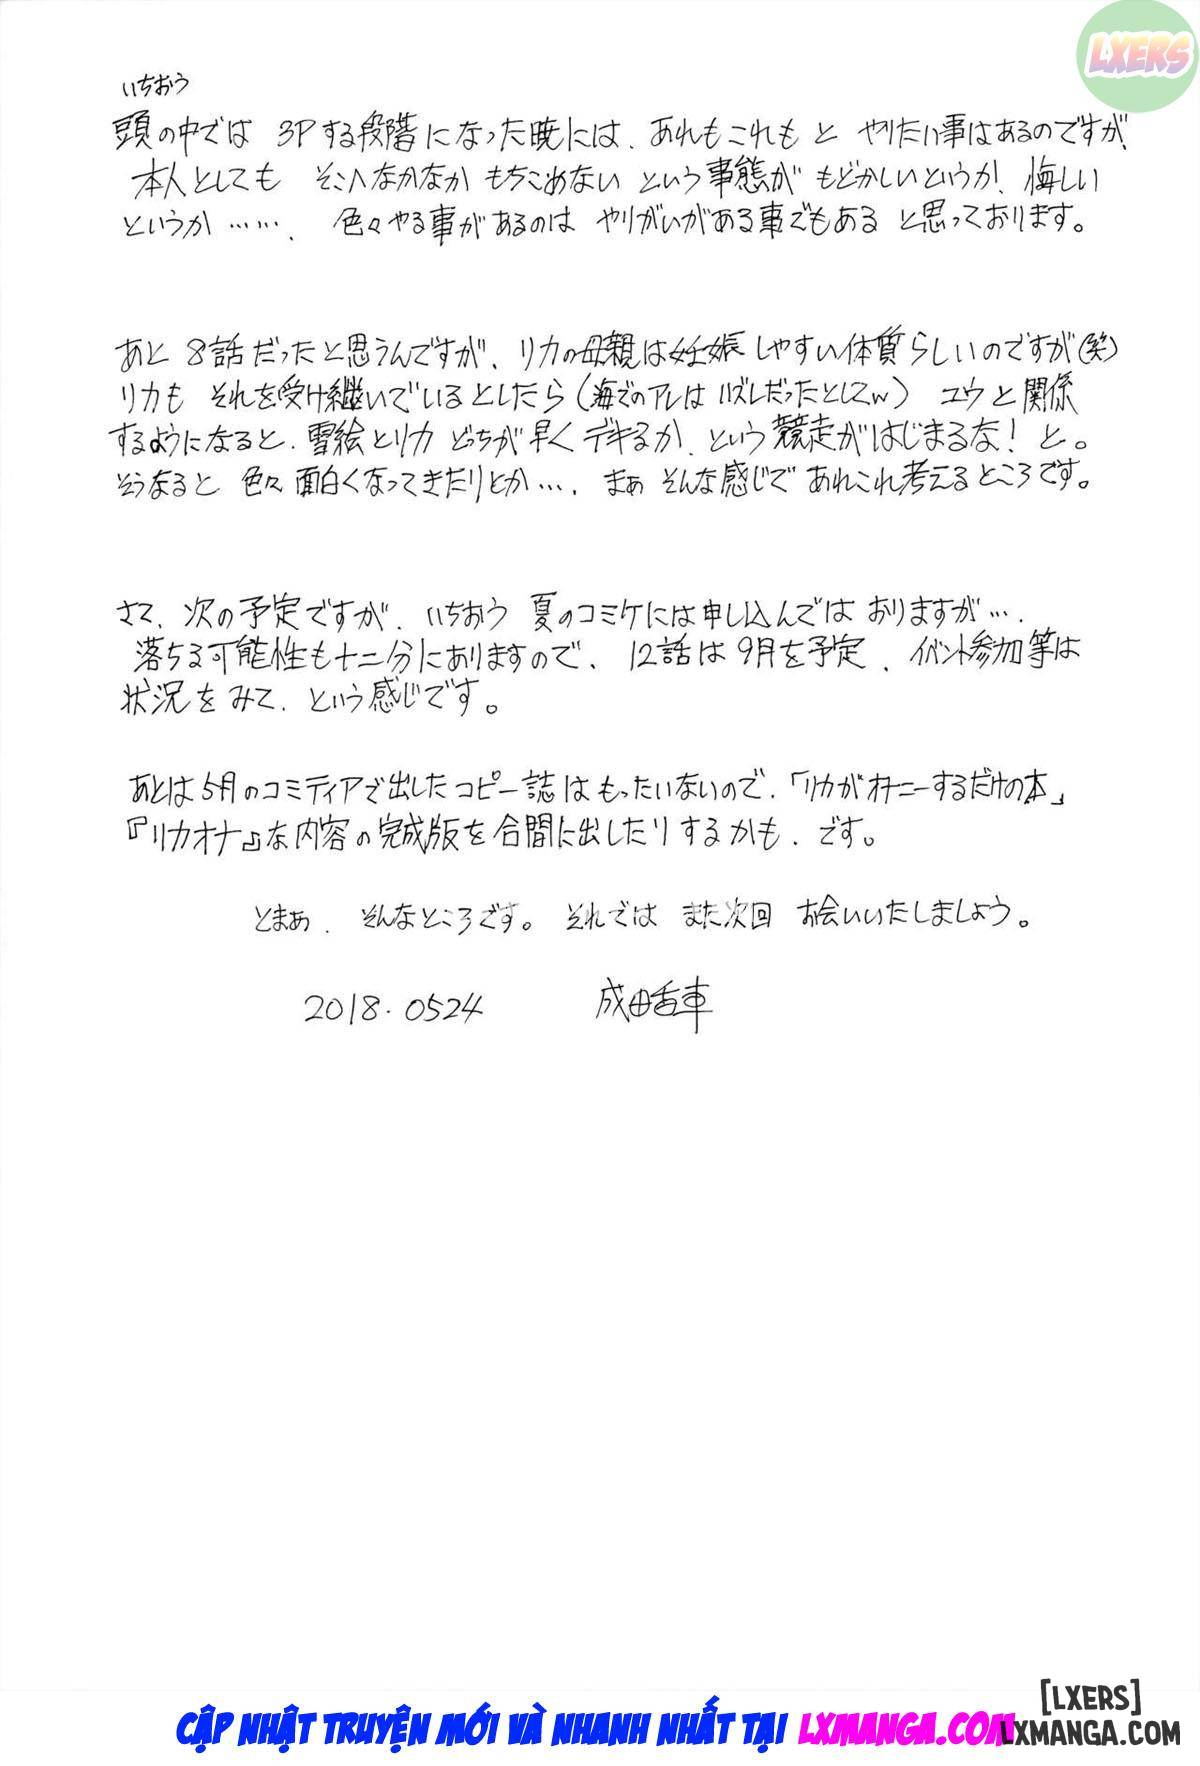 LXERS
いちおう
頭の中では 3Pする段階になった暁には、あれもこれもと やりたい事はあるのですが、
本人としても そこへなかなか もちこめない という事態が もどかしいというか、悔しい
というか……、 色々やる事があるのは やりがいがある事でもある と思っております。
あと 8話だったと思うんですが、リカの母親は妊娠しやすい体質らしいのですが(笑)
リカも それを受け継いでいるとしたら(海でのアレは ハズレだったとしてw) ユウと関係
するようになると、雪絵とリカ どっちが早くデキるか、という競走がはじまるな！と。
そうなると 色々面白くなってきたりとか…、まぁ そんな感じで あれこれ考えるところです。
さて、次の予定ですが、いちおう 夏のコミケには申し込んでは おりますが…、
落ちる可能性も十二分にありますので、 12話は9月を予定、イベント参加等は
状況をみて、という感じです。
あとは5月のコミティアで出したコピー誌はもったいないので、「リカがオナニーするだけの本」
『リカオナ』な内容の完成版を合間に出したりするかも、です。
とまぁ、そんなところです。それでは また次回 お会いいたしましょう。
2018.0524 成田香車
[LXERS]
CẬP NHẬT TRUYỆN MỚI VÀ NHANH NHẤT TẠI LXMANGA.COM
LXMANGA.COM